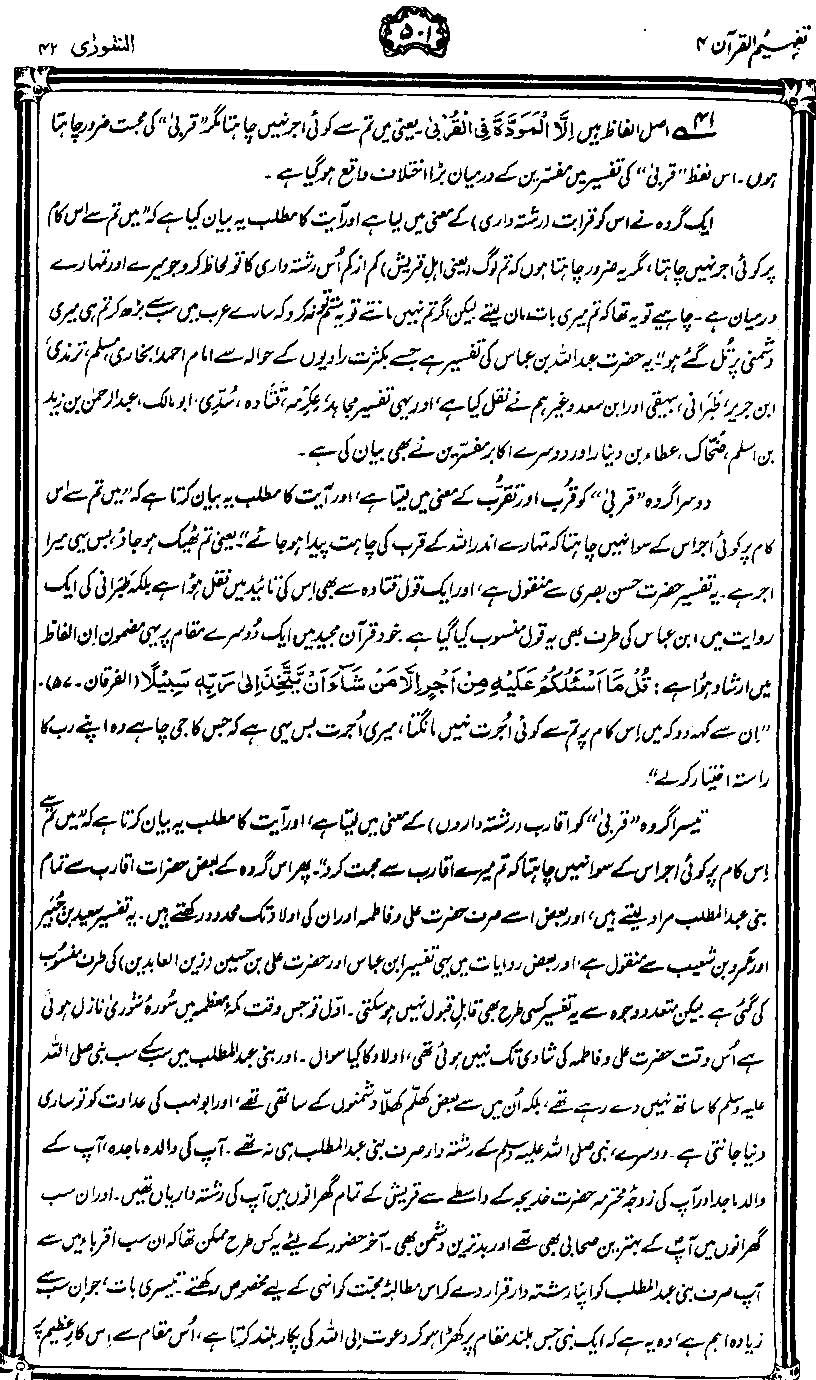 تفہیم القرآن ۴
۵۰۱
الشوریٰ ۴۲
۴۱؎ اصل الفاظ ہیں اِلَّا الْمَوَدَّۃَ فِی الْقُرْبٰی۔ یعنی میں تم سے کوئی اجر نہیں چاہتا مگر "قربیٰ" کی محبت ضرور چاہتا
ہوں۔ اس لفظ "قربیٰ" کی تفسیر میں مفسرین کے درمیان بڑا اختلاف واقع ہو گیا ہے۔
ایک گروہ نے اس کو قرابت (رشتہ داری) کے معنی میں لیا ہے اور آیت کا مطلب یہ بیان کیا ہے کہ "میں تم سے اس کام
پر کوئی اجر نہیں چاہتا، مگر یہ ضرور چاہتا ہوں کہ تم لوگ (یعنی اہلِ قریش) کم از کم اُس رشتہ داری کا تو لحاظ کرو جو میرے اور تمہارے
درمیان ہے۔ چاہیے تو یہ تھا کہ تم میری بات مان لیتے لیکن اگر تم نہیں مانتے تو یہ ستم تو نہ کرو کہ سارے عرب میں سب سے بڑھ کر تم ہی میری
دشمنی پر تُل گئے ہو"۔ یہ حضرت عبداللہ بن عباس کی تفسیر ہے جسے بکثرت راویوں کے حوالہ سے امام احمد، بخاری، مسلم، ترمذی،
ابن جریر، طَبَرانی، بیہقی اور ابن سعد وغیرہم نے نقل کیا ہے، اور یہی تفسیر مجاہد، عِکْرِمہ، قَتَادہ، سُدِّی، ابو مالک، عبدالرحمٰن بن زید
بن اسلم، ضَحَّاک، عطاء بن دینار اور دوسرے اکابر مفسرین نے بھی بیان کی ہے۔
دوسرا گروہ "قربیٰ" کو قُرب اور تقرُّب کے معنی میں لیتا ہے، اور آیت کا مطلب یہ بیان کرتا ہے کہ "میں تم سے اس
کام پر کوئی اجر اس کے سوا نہیں چاہتا کہ تمہارے اندر اللہ کے قرب کی چاہت پیدا ہو جائے"۔ یعنی تم ٹھیک ہو جاؤ، بس یہی میرا
اجر ہے۔ یہ تفسیر حضرت حسن بصری سے منقول ہے، اور ایک قول قتادہ سے بھی اس کی تائید میں نقل ہوا ہے بلکہ طَبَرانی کی ایک
روایت میں ابن عباس کی طرف بھی یہ قول منسوب کیا گیا ہے۔ خود قرآن مجید میں ایک دُوسرے مقام پر یہی مضمون اِن الفاظ
میں ارشاد ہوا ہے: قُلْ مَا اَسْئَلُکُمْ عَلَیْہِ مِنْ اَجْرٍ اِلَّا مَنْ شَآءَ اَنْ یَّتَّخِذَ اِلٰی رَبِّہٖ سَبِیْلًا (الفرقان۔ ۵۷)۔
"اِن سے کہہ دو کہ میں اِس کام پر تم سے کوئی اُجرت نہیں مانگتا، میری اُجرت بس یہی ہے کہ جس کا جی چاہے وہ اپنے رب کا
راستہ اختیار کر لے"۔
تیسرا گروہ "قربیٰ" کو اقارب (رشتہ داروں) کے معنی میں لیتا ہے، اور آیت کا مطلب یہ بیان کرتا ہے کہ "میں تم سے
اِس کام پر کوئی اجر اس کے سوا نہیں چاہتا کہ تم میرے اقارب سے محبت کرو"۔ پھر اس گروہ کے بعض حضرات اقارب سے تمام
بنی عبدالمطلب مراد لیتے ہیں، اور بعض اسے صرف حضرت علی و فاطمہ اور ان کی اولاد تک محدود رکھتے ہیں۔ یہ تفسیر سعید بن جُبَیر
اور عَمرو بن شعیب سے منقول ہے، اور بعض روایات میں یہی تفسیر ابن عباس اور حضرت علی بن حسین (زین العابدین) کی طرف منسوب
کی گئی ہے۔ لیکن متعدد وجوہ سے یہ تفسیر کسی طرح بھی قابلِ قبول نہیں ہو سکتی۔ اوّل تو جس وقت مکہ معظمہ میں سُورۂ شوریٰ نازل ہوئی
ہے اُس وقت حضرت علی و فاطمہ کی شادی تک نہیں ہوئی تھی، اولاد کا کیا سوال۔ اور بنی عبدالمطلب میں سب کے سب نبی صلی اللہ
علیہ وسلم کا ساتھ نہیں دے رہے تھے، بلکہ اُن میں سے بعض کھلم کھلا دشمنوں کے ساتھی تھے، اور ابولہب کی عداوت کو تو ساری
دنیا جانتی ہے۔ دوسرے، نبی صلی اللہ علیہ وسلم کے رشتہ دار صرف بنی عبدالمطلب ہی نہ تھے۔ آپ کی والدہ ماجدہ، آپ کے
والد ماجد اور آپ کی زوجۂ محترمہ حضرت خدیجہ کے واسطے سے قریش کے تمام گھرانوں میں آپ کی رشتہ داریاں تھیں۔ اور ان سب
گھرانوں میں آپ کے بہترین صحابی بھی تھے اور بدترین دشمن بھی۔ آخر حضور کے لیے یہ کس طرح ممکن تھا کہ ان سب اقرباء میں سے
آپ صرف بنی عبدالمطلب کو اپنا رشتہ دار قرار دے کر اس مطالبۂ محبت کو انہی کے لیے مخصوص رکھتے۔ تیسری بات، جو ان سب سے
زیادہ اہم ہے، وہ یہ ہے کہ ایک نبی جس بلند مقام پر کھڑا ہو کر دعوت الی اللہ کی پکار بلند کرتا ہے، اُس مقام سے اِس کارِ عظیم پر